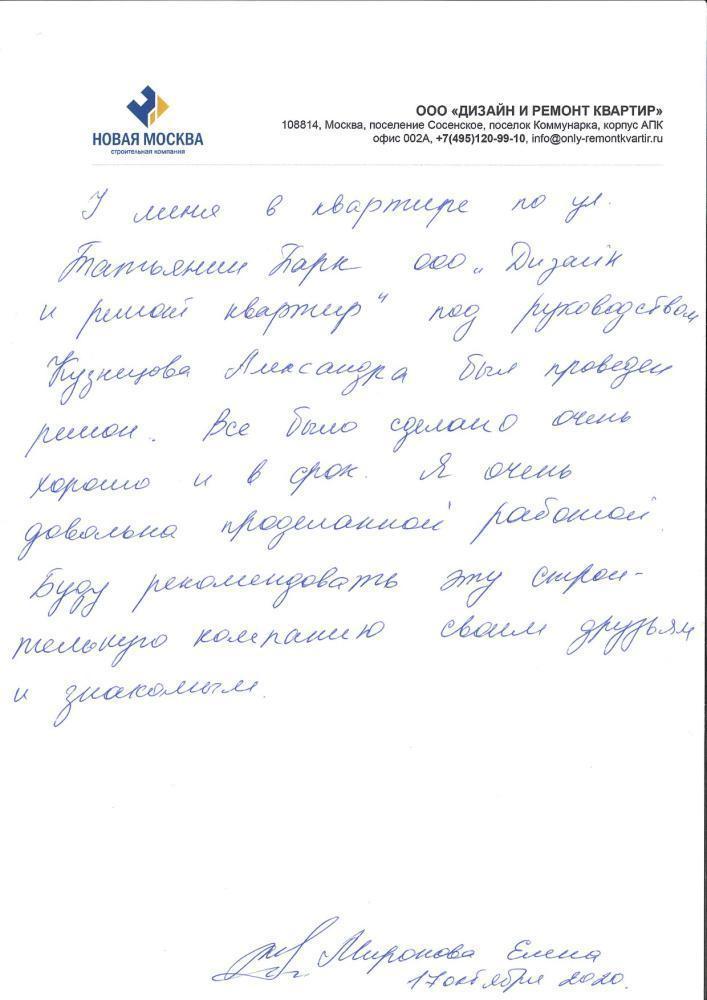 НОВАЯ МОСКВА
строительная компания
ООО «ДИЗАЙН И РЕМОНТ КВАРТИР»
108814, Москва, поселение Сосенское, поселок Коммунарка, корпус АПК
офис 002А, +7(495)120-99-10, info@only-remontkvartir.ru
У меня в квартире по ул.
Татьянин Парк ООО „Дизайн
и ремонт квартир" под руководством
Кузнецова Александра был проведен
ремон. Все было сделано очень
хорошо и в срок. Я очень
довольна проделанной работой.
Буду рекомендовать эту строи-
тельную компанию своим друзьям
и знакомым.
Миронова Елена
17 октября 2020.